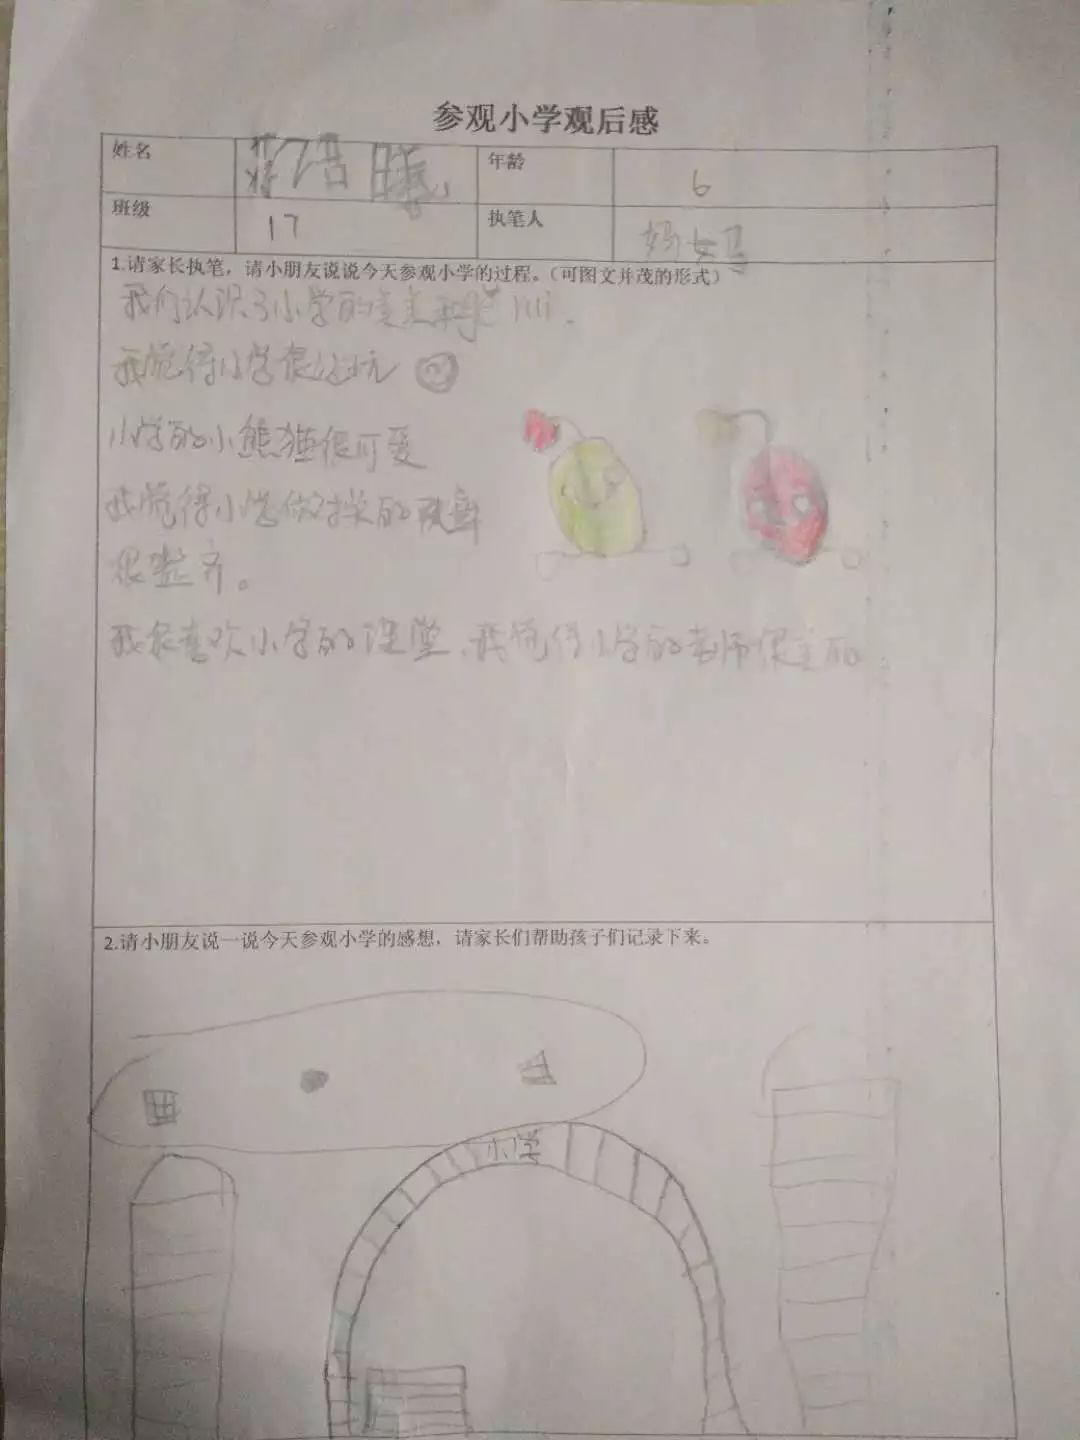 参观小学观后感
姓名
年龄 6
班级 17
执笔人 妈妈
1.请家长执笔，请小朋友说说今天参观小学的过程。（可图文并茂的形式）
我们认识了小学的
我觉得小学很好玩
小学的小熊猫很可爱
我觉得小学做操的
很整齐。
我最喜欢小学的课堂、我觉得小学的老师很
2.请小朋友说一说今天参观小学的感想，请家长们帮助孩子们记录下来。
小学